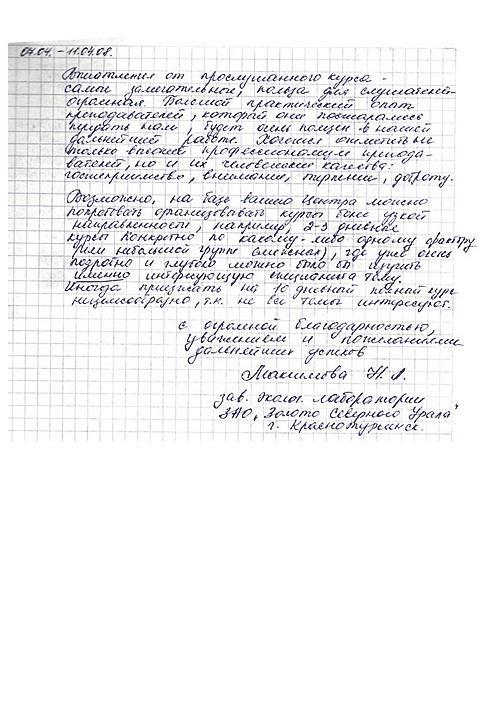 07.04. - 11.04.08.
Впечатления от прослушанного курса -
самые замечательные, польза для слушателей
огромная. Большой практический опыт
преподавателей, который они постарались
передать нам, будет очень полезен в нашей
дальнейшей работе. Хочется отметить не
только высокий профессионализм препода-
вателей, но и их человеческие качества:
гостеприимство, внимание, терпение, доброту.
Возможно, на базе вашего Центра можно
попробовать организовать курсы более узкой
направленности, например, 2-3 дневные
курсы конкретно по какому-либо одному фактору
(или небольшой группе смежных), где уже очень
подробно и глубоко можно было бы изучить
именно интересующую специалиста тему.
Иногда приезжать на 10 дневный полный курс
нецелесообразно, т.к. не все темы интересуют.
с огромной благодарностью,
уважением и пожеланиями
дальнейших успехов
Максимова Н.
зав. эколог. лаборатории
ЗАО „Золото Северного Урала"
г. Краснотурьинск.